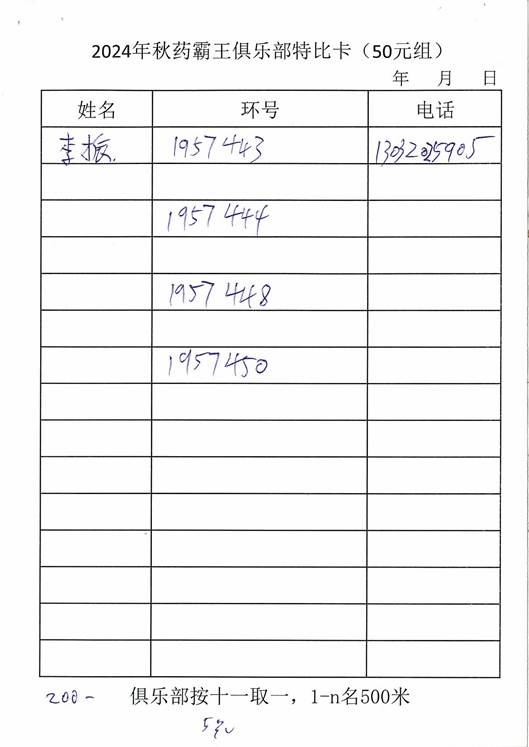 2024年秋药霸王俱乐部特比卡（50元组）
年 月 日
姓名 环号 电话
李振 1957443
1957444
1957448
1957450
200- 俱乐部按十一取一，1-n名500米